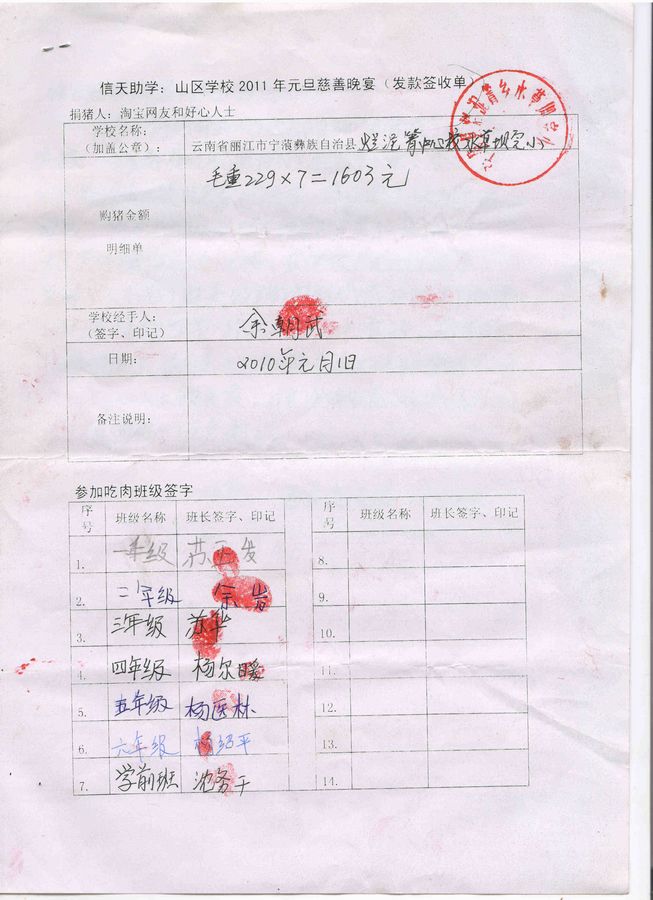 信天助学：山区学校2011年元旦慈善晚宴（发款签收单）
捐猪人：淘宝网友和好心人士
学校名称：
（加盖公章）：
云南省丽江市宁蒗彝族自治县 烂泥箐 水草坝完小
毛重229×7=1603元
购猪金额
明细单
学校经手人：
（签字、印记）
余朝武
日期：
2010年元月1日
备注说明：
参加吃肉班级签字
序号 班级名称 班长签字、印记 序号 班级名称 班长签字、印记
1. 一年级 苏 发 8.
2. 二年级 余岩 9.
3. 三年级 苏华 10.
4. 四年级 杨尔 11.
5. 五年级 杨医林 12.
6. 六年级 杨绍平 13.
7. 学前班 沈务干 14.